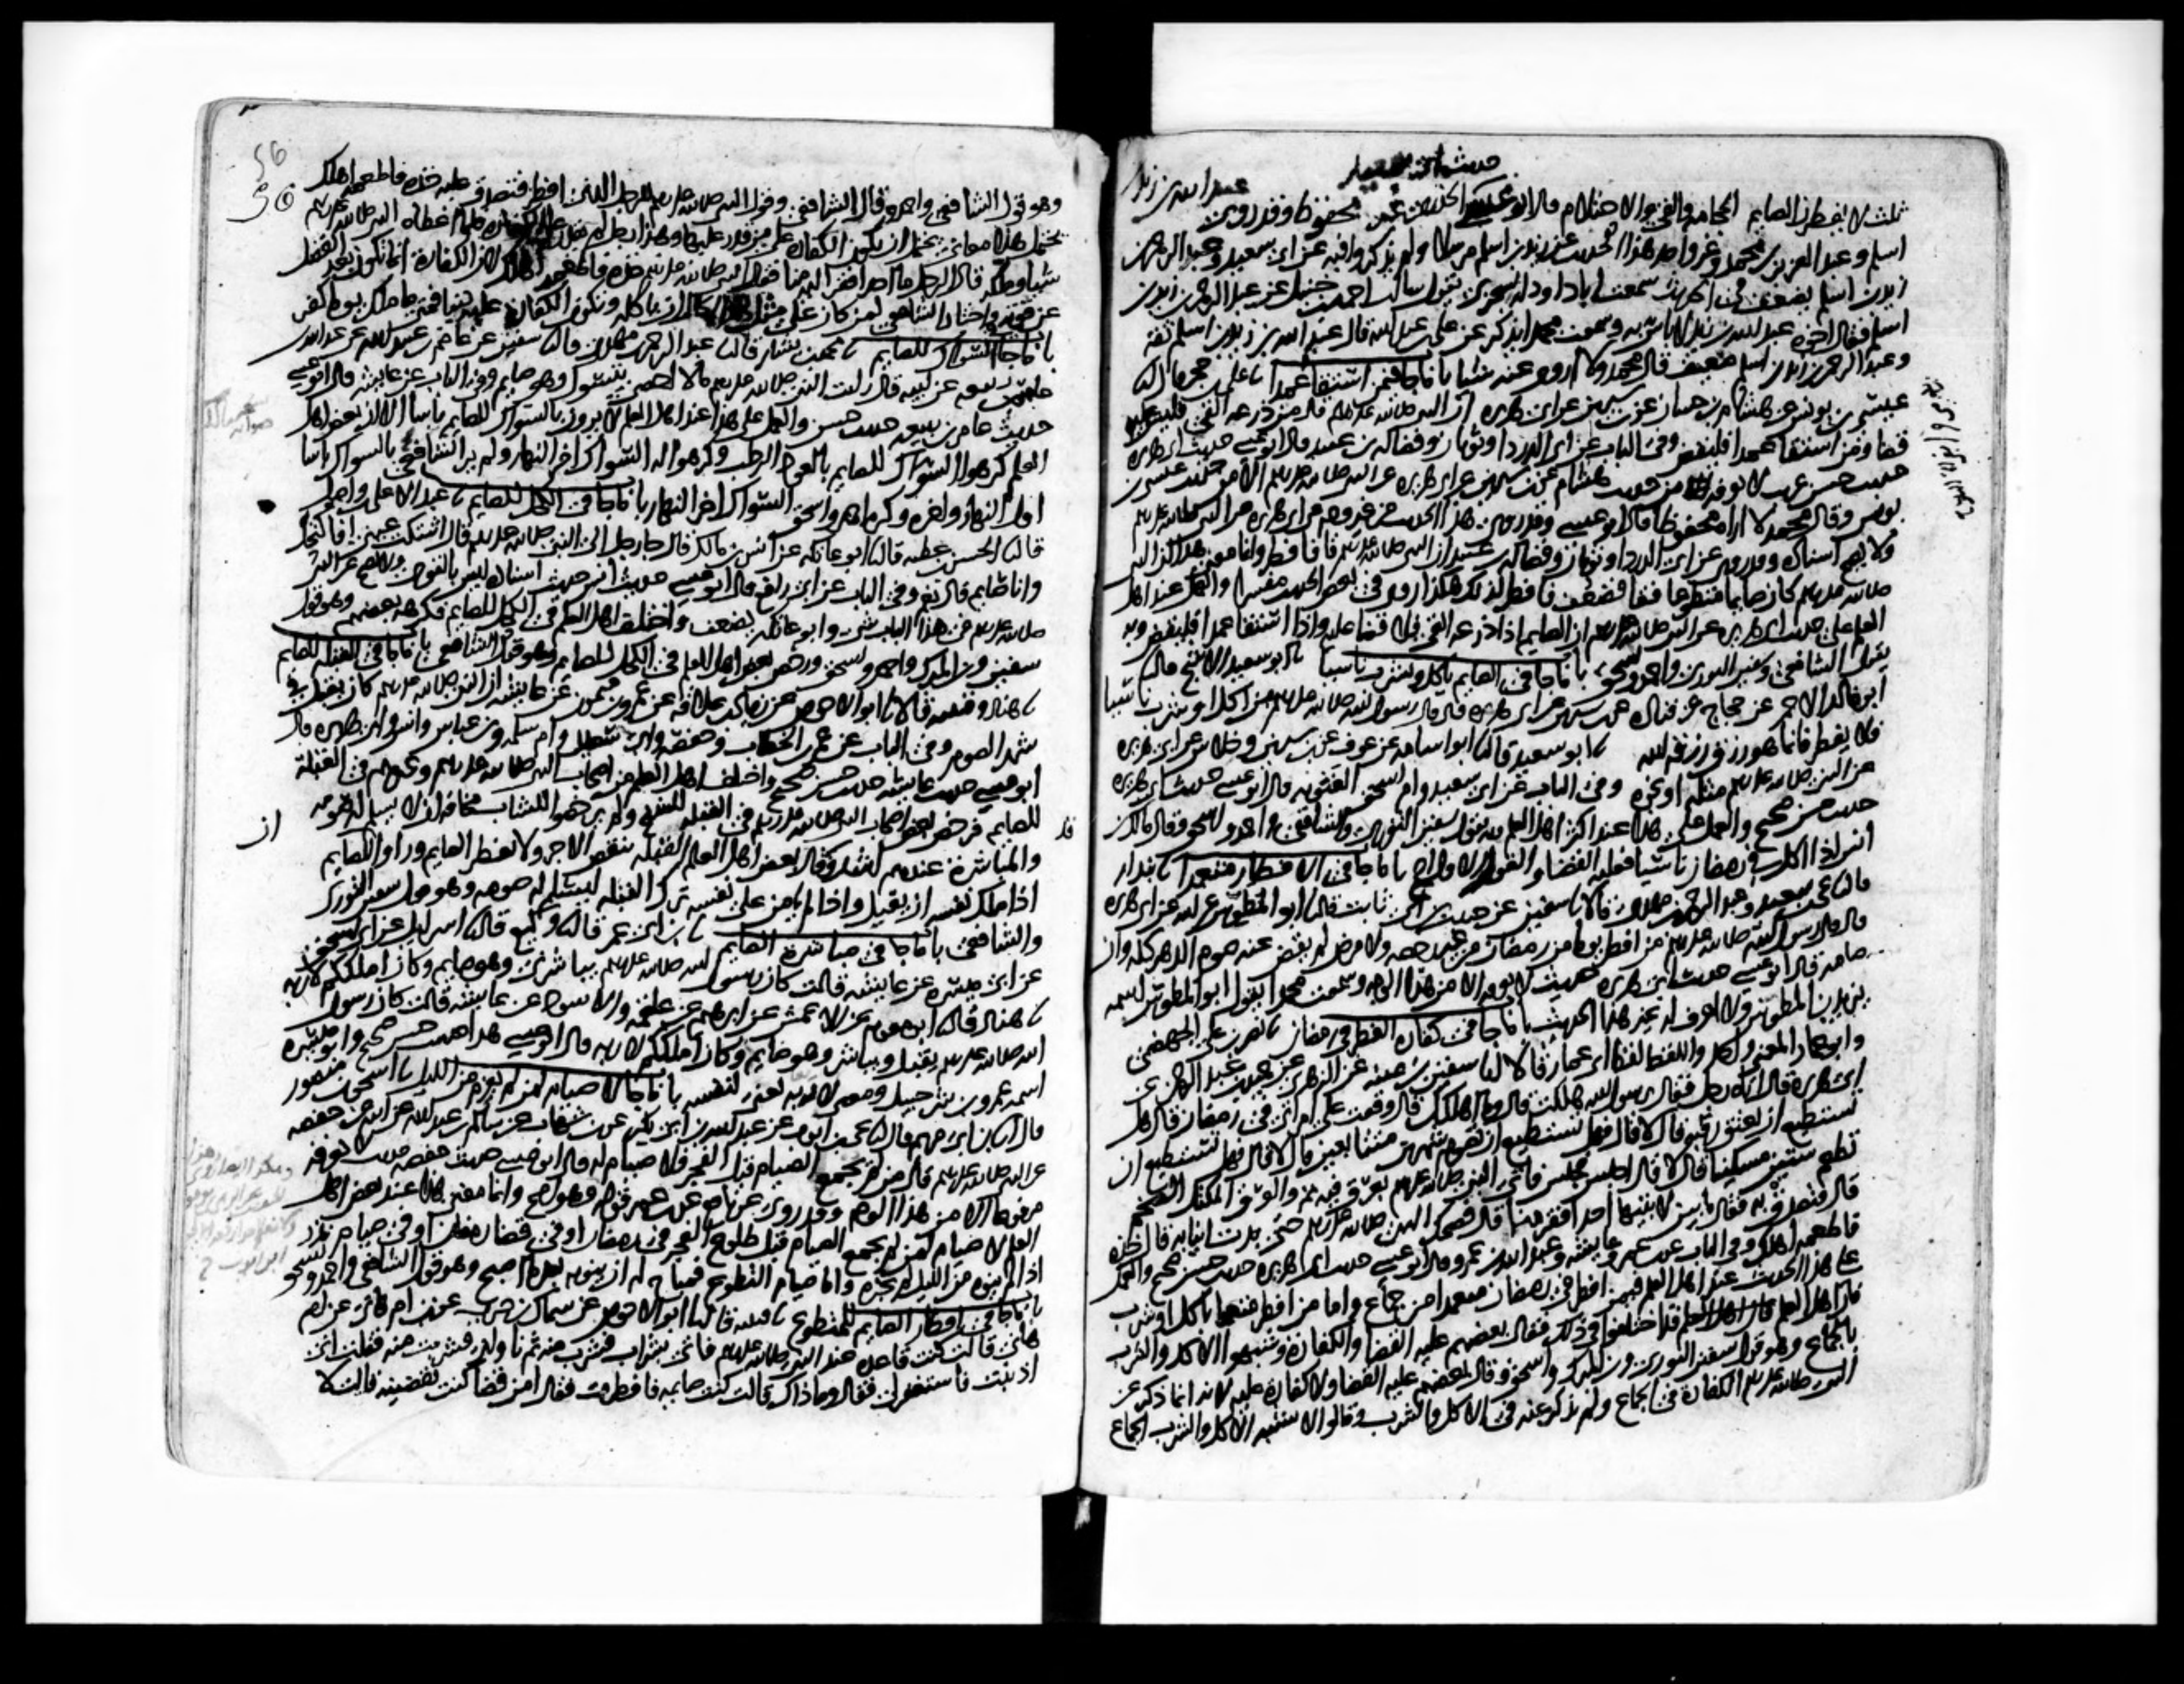 حديث ابي سعيد
عبد الله بن زيد
ثلث لا يفطرن الصايم الحجامه والقي والاحتلام قال ابو عيسى غير محفوظ وقد روى
اسلم وعبد العزيز بن محمد وغير واحد هذا الحديث عن زيد بن اسلم مرسلا ولم يذكروا فيه عن ابي سعيد وعبد الرحمن
زيد بن اسلم يضعف في الحديث سمعت ابا داود السجزي يقول سالت احمد بن حنبل عن عبد الرحمن بن زيد بن
اسلم فقال اخوه عبد الله بن زيد لا باس به وسمعت محمدا يذكر عن علي بن عبد الله قال عبد الله بن زيد بن اسلم ثقة
وعبد الرحمن بن زيد بن اسلم ضعيف قال محمد ولا اروي عنه شيا باب ما جا فيمن استقا عمدا علي بن حجر
عيسى بن يونس عن هشام بن حسان عن بن سيرين عن ابي هريره ان النبي صلى الله عليه وسلم قال من ذرعه القي فليس عليه
قضا ومن استقا عمدا فليقض وفي الباب عن ابي الدردا وثوبان وفضاله بن عبيد قال ابو عيسى حديث ابي هريره
حديث حسن غريب لا نعرفه من حديث هشام عن بن سيرين عن ابي هريره عن النبي صلى الله عليه وسلم الا من حديث عيسى بن
يونس وقال محمد لا اراه محفوظا قال ابو عيسى وقد روي هذا الحديث من غير وجه عن ابي هريره عن النبي صلى الله عليه وسلم
ولا يصح اسناده وقد روي عن ابي الدردا وثوبان وفضاله بن عبيد ان النبي صلى الله عليه وسلم قا فافطر وانما معنى هذا ان النبي
صلى الله عليه وسلم كان صايما متطوعا فقا فضعف فافطر لذلك هكذا روي في بعض الحديث مفسرا والعمل عند اهل
العلم على حديث ابي هريره عن النبي صلى الله عليه وسلم ان الصايم اذا ذرعه القي فلا قضا عليه واذا استقا عمدا فليقض وبه
يقول الشافعي وسفين الثوري واحمد واسحق باب ما جا في الصايم ياكل ويشرب ناسيا ابو سعيد الاشج قال
ابو خالد الاحمر عن حجاج عن قتاده عن بن سيرين عن ابي هريره قال قال رسول الله صلى الله عليه وسلم من اكل او شرب ناسيا
فلا يفطر فانما هو رزق رزقه الله ابو سعيد قال ابو اسامه عن عوف عن بن سيرين وخلاس عن ابي هريره
عن النبي صلى الله عليه وسلم مثله او نحوه وفي الباب عن ابي سعيد وام اسحق الغنويه قال ابو عيسى حديث ابي هريره
حديث حسن صحيح والعمل على هذا عند اكثر اهل العلم به يقول سفين الثوري والشافعي واحمد واسحق وقال مالك بن
انس اذا اكل في رمضان ناسيا فعليه القضا والقول الاول اصح باب ما جا في الافطار متعمدا بندار
قال يحيى بن سعيد وعبد الرحمن بن مهدي قالا سفين عن حبيب بن ابي ثابت قال ابو المطوس عن ابيه عن ابي هريره
قال قال رسول الله صلى الله عليه وسلم من افطر يوما من رمضان من غير رخصه ولا مرض لم يقض عنه صوم الدهر كله وان
صامه قال ابو عيسى حديث ابي هريره حديث لا نعرفه الا من هذا الوجه وسمعت محمدا يقول ابو المطوس اسمه
يزيد بن المطوس ولا اعرف له غير هذا الحديث باب ما جا في كفاره الفطر في رمضان نصر بن علي الجهضمي
وابو عمار المعنى واحد واللفظ لفظ ابي عمار قالا سفين بن عيينه عن الزهري عن حميد بن عبد الرحمن عن
ابي هريره قال اتاه رجل فقال يرسول الله هلكت قال وما اهلكك قال وقعت على امراتي في رمضان قال هل
تستطيع ان تعتق رقبه قال لا قال فهل تستطيع ان تصوم شهرين متتابعين قال لا قال فهل تستطيع ان
تطعم ستين مسكينا قال لا قال اجلس فجلس فاتي النبي صلى الله عليه وسلم بعرق فيه تمر والعرق المكتل الضخم
قال فتصدق به فقال ما بين لابتيها احد افقر منا قال فضحك النبي صلى الله عليه وسلم حتى بدت انيابه قال خذه
فاطعمه اهلك وفي الباب عن بن عمر وعايشه وعبد الله بن عمرو قال ابو عيسى حديث ابي هريره حديث حسن صحيح والعمل
على هذا الحديث عند اهل العلم فيمن افطر في رمضان متعمدا من جماع واما من افطر متعمدا باكل او شرب
فان اهل العلم قد اختلفوا في ذلك فقال بعضهم عليه القضا والكفارة وشبهوا الاكل والشرب
بالجماع وهو قول سفين الثوري وبن المبارك واسحق وقال بعضهم عليه القضا ولا كفارة عليه لانه انما ذكر عن
النبي صلى الله عليه وسلم الكفارة في الجماع ولم يذكر عنه في الاكل والشرب وقالوا لا يشبه الاكل والشرب الجماع
56
وهو قول الشافعي واحمد وقال الشافعي وقول النبي صلى الله عليه وسلم للرجل الذي افطر فتصدق عليه خذه فاطعمه اهلك
يحتمل هذا معاني يحتمل ان تكون الكفاره على من قدر عليها وهذا رجل لم يقدر على الكفاره فلما اعطاه النبي صلى الله عليه وسلم
شيا وملكه قال الرجل ما احد افقر اليه منا فقال النبي صلى الله عليه وسلم خذه فاطعمه اهلك لان الكفارة انما تكون بعد الفضل
عن قوته واختار الشافعي لمن كان على مثل هذا الحال ان ياكله وتكون الكفاره عليه دينا فمتى ما ملك يوما كفر
باب ما جا في السواك للصايم محمد بن بشار قال عبد الرحمن بن مهدي قال سفين عن عاصم بن عبيد الله عن عبد الله بن
عامر بن ربيعه عن ابيه قال رايت النبي صلى الله عليه وسلم ما لا احصي يتسوك وهو صايم وفي الباب عن عايشه قال ابو عيسى
حديث عامر بن ربيعه حديث حسن والعمل على هذا عند اهل العلم لا يرون بالسواك للصايم باسا الا ان بعض اهل
العلم كرهوا السواك للصايم بالعود الرطب وكرهوا له السواك اخر النهار ولم ير الشافعي بالسواك باسا
اول النهار واخره وكره احمد واسحق السواك اخر النهار باب ما جا في الكحل للصايم عبد الاعلى بن واصل
قال الحسن بن عطيه قال ابو عاتكه عن انس بن مالك قال جا رجل الى النبي صلى الله عليه وسلم قال اشتكت عيني افاكتحل
وانا صايم قال نعم وفي الباب عن ابي رافع قال ابو عيسى حديث انس حديث اسناده ليس بالقوي ولا يصح عن النبي
صلى الله عليه وسلم في هذا الباب شي وابو عاتكه يضعف واختلف اهل العلم في الكحل للصايم فكرهه بعضهم وهو قول
سفين وبن المبارك واحمد واسحق ورخص بعض اهل العلم في الكحل للصايم وهو قول الشافعي باب ما جا في القبله للصايم
هناد وقتيبه قالا ابو الاحوص عن زياد بن علاقه عن عمرو بن ميمون عن عايشه ان النبي صلى الله عليه وسلم كان يقبل في
شهر الصوم وفي الباب عن عمر بن الخطاب وحفصه وابي سعيد وام سلمه وبن عباس وانس وابي هريره قال
ابو عيسى حديث عايشه حديث حسن صحيح واختلف اهل العلم من اصحاب النبي صلى الله عليه وسلم وغيرهم في القبلة
للصايم فرخص بعض اصحاب النبي صلى الله عليه وسلم في القبله للشيخ ولم يرخصوا للشاب مخافه ان لا يسلم له صومه
والمباشرة عندهم اشد وقال بعض اهل العلم القبله تنقص الاجر ولا تفطر الصايم وراوا ان للصايم
اذا ملك نفسه ان يقبل واذا لم يامن على نفسه ترك القبله ليسلم له صومه وهو قول سفين الثوري
والشافعي باب ما جا في مباشرة الصايم بن ابي عمر قال وكيع قال اسرايل عن ابي اسحق
عن ابي ميسره عن عايشه قالت كان رسول الله صلى الله عليه وسلم يباشرني وهو صايم وكان املككم لاربه
هناد قال ابو معويه عن الاعمش عن ابرهيم عن علقمه والاسود عن عايشه قالت كان رسول
الله صلى الله عليه وسلم يقبل ويباشر وهو صايم وكان املككم لاربه قال ابو عيسى هذا حديث حسن صحيح وابو ميسره
اسمه عمرو بن شرحبيل ومعنى لاربه يعني لنفسه باب ما جا لا صيام لمن لم يعزم من الليل اسحق بن منصور
قال بن ابي مريم قال يحيى بن ايوب عن عبد الله بن ابي بكر عن بن شهاب عن سالم بن عبد الله عن ابيه عن حفصه
عن النبي صلى الله عليه وسلم قال من لم يجمع الصيام قبل الفجر فلا صيام له قال ابو عيسى حديث حفصه حديث لا نعرفه
مرفوعا الا من هذا الوجه وقد روي عن نافع عن بن عمر قوله وهو اصح وانما معنى هذا عند بعض اهل
العلم لا صيام لمن لم يجمع الصيام قبل طلوع الفجر في رمضان او في قضا رمضان او في صيام نذر
اذا لم ينوه من الليل لم يجزه واما صيام التطوع فمباح له ان ينويه بعد ما اصبح وهو قول الشافعي واحمد واسحق
باب ما جا في افطار الصايم المتطوع قتيبه قال ابو الاحوص عن سماك بن حرب عن بن ام هاني عن ام
هاني قالت كنت قاعده عند النبي صلى الله عليه وسلم فاتي بشراب فشرب منه ثم ناولني فشربت منه فقلت اني
اذنبت فاستغفر لي فقال وما ذاك قالت كنت صايمه فافطرت فقال امن قضا كنت تقضينه قالت لا